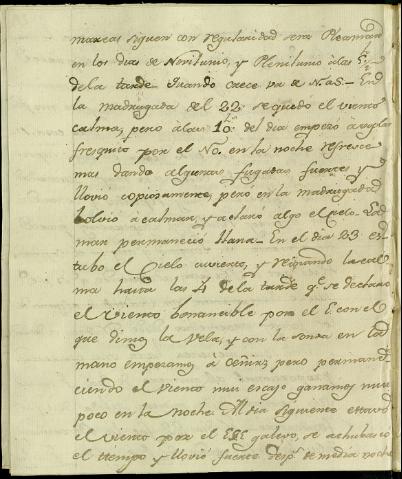 mareas siguen con regularidad sera Pleamar
en los dias de Novilunio, y Plenilunio à las 5½
de la tarde. Quando crece va de N. a S. En
la madrugada del 22 se quedo el viento
calma, pero à las 10 del dia empezó à soplar
fresquito por el N.º en la noche refresco
mas dando algunas fugadas fuertes y
llovio copiosamente, pero en la madrugada
bolvio à calmar, y aclaro algo el Cielo. La
mar permaneció llana. En el dia 23 es
tubo el Cielo cuvierto, y reynando la cal
ma hasta las 4 de la tarde q.e se declaro
el viento bonancible por el E. con el
que dimos la vela, y con la sonda en la
mano empezamos à ceñir, pero permane
ciendo el viento mui escaso ganamos mui
poco en la noche. Al dia siguiente estavo
el viento por el ESE galeno, se achubasco
el tiempo y llovió fuerte desp.s de media noche